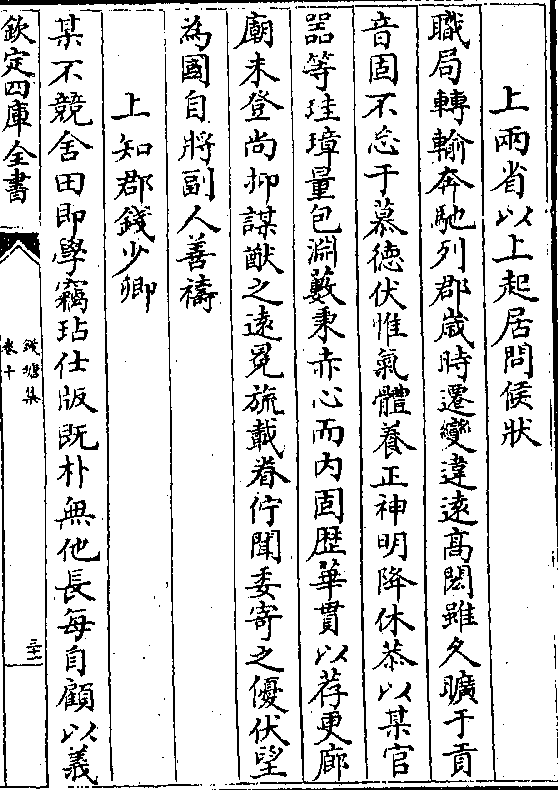 上兩省以上起居問候狀
職局轉輸奔馳列郡嵗時遷變違遠高閎雖久曠于貢
音固不忘于慕徳伏惟氣體養正神明降休恭以某官
器等珪璋量包淵藪秉赤心而内固歴華貫以荐更廊
廟未登尚抑謀猷之遠冕旒載眷佇聞委寄之優伏望
為國自將副人善禱
上知郡錢少卿
某不競舍田即學竊玷仕版既朴無他長每自顧以義
欽定四庫全書
錢塘集
卷十
三十一